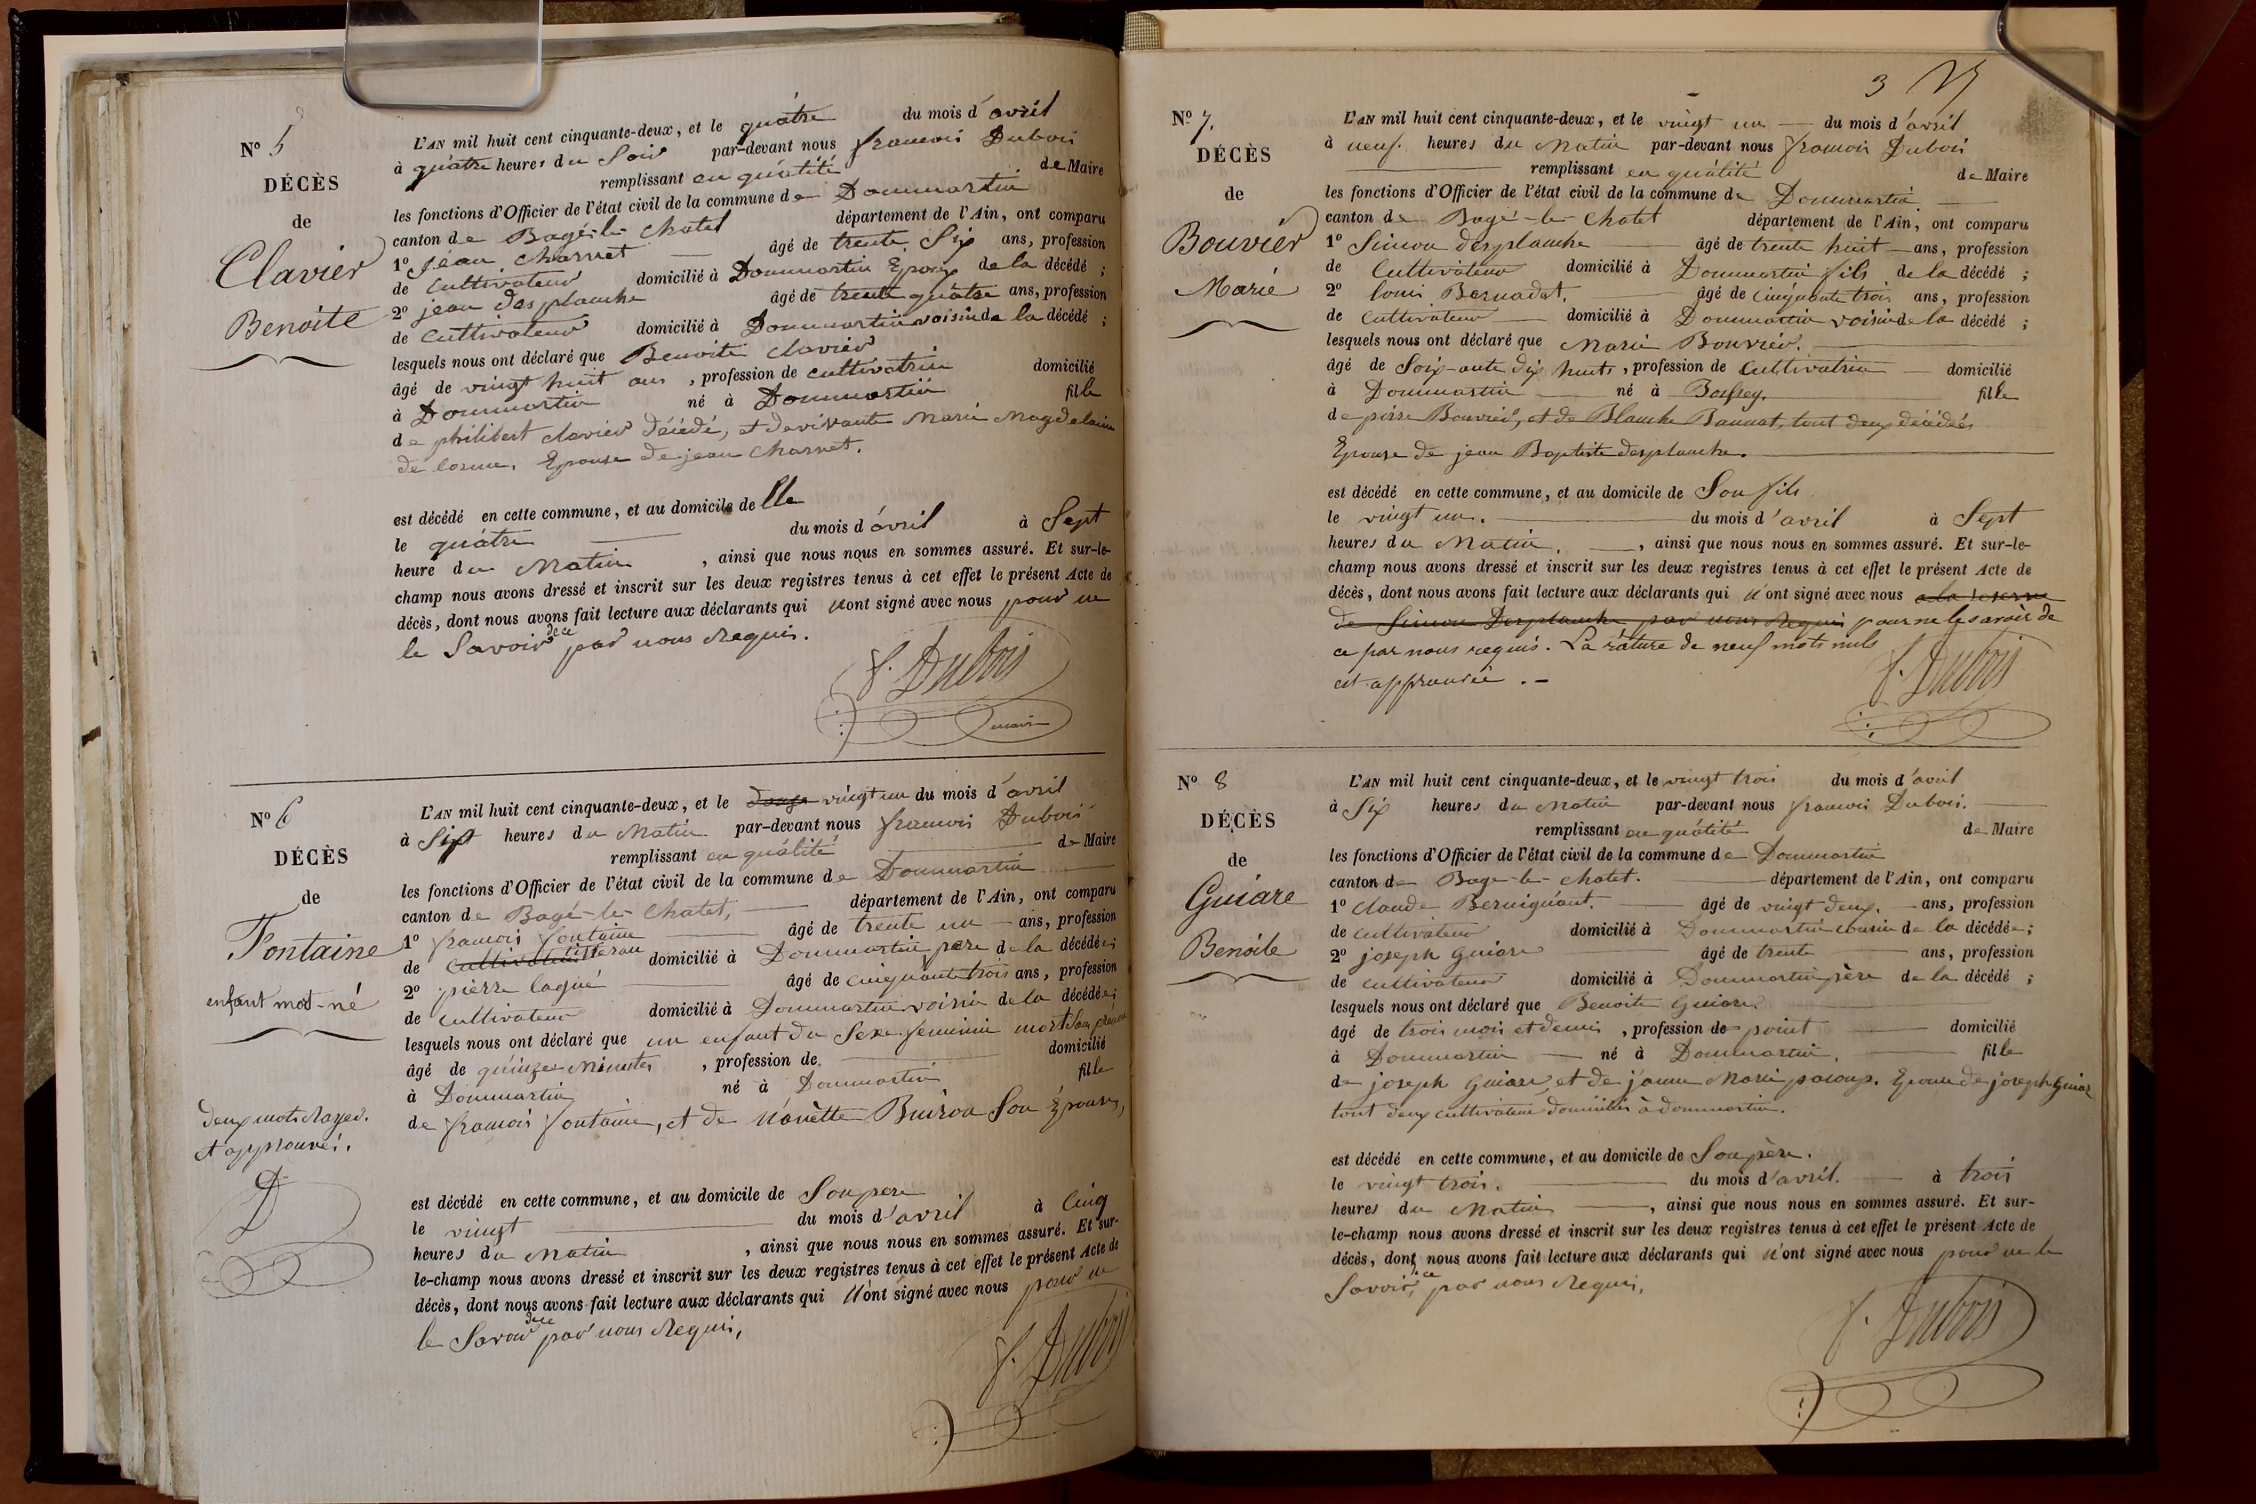 N° 5
DÉCÈS
de
Clavier
Benoite
L'AN mil huit cent cinquante-deux, et le quatre du mois d'avril
à quatre heures du Soir par-devant nous francois Dubois
remplissant en quálité de Maire
les fonctions d'Officier de l'état civil de la commune de Dommartin
canton de Bagé-le-Chatel département de l'Ain, ont comparu
1° Jean Charnet âgé de trente Six ans, profession
de Cultivateur domicilié à Dommartin Epoux de la décédé ;
2° jean desplanche âgé de trente quatre ans, profession
de Cultivateur domicilié à Dommartin voisin de la décédé ;
lesquels nous ont déclaré que Benoite Clavier
âgé de vingt huit ans , profession de cultivatrice domicilié
à Dommartin né à Dommartin fille
de philibert clavier décédé, et de vivante Marie Magdelaine
de losme. Epouse de jean Charnet.
est décédé en cette commune, et au domicile de lle
le quátre du mois d'ávril à Sept
heure du Matin , ainsi que nous nous en sommes assuré. Et sur-le-
champ nous avons dressé et inscrit sur les deux registres tenus à cet effet le présent Acte de
décès, dont nous avons fait lecture aux déclarants qui n'ont signé avec nous pour ne
le Savoir de ce par nous Requis.
f. Dubois
maire
N° 6
DÉCÈS
de
Fontaine
enfant mort-né
deux mots Rayer.
et approuvés.
D
L'AN mil huit cent cinquante-deux, et le douze vingt un du mois d'avril
à Sept heures du Matin par-devant nous francois Dubois
remplissant en quálité de Maire
les fonctions d'Officier de l'état civil de la commune de Dommartin
canton de Bagé-le-Chatel, département de l'Ain, ont comparu
1° francois fontaine âgé de trente un ans, profession
de Cultivateur tisseran domicilié à Dommartin père de la décédée ;
2° pierre lagué âgé de cinquante trois ans, profession
de cultivateur domicilié à Dommartin voisin de la décédée ;
lesquels nous ont déclaré que un enfant du Sexe feminin mort San prenom
âgé de quinze Minutes , profession de domicilié
à Dommartin né à Dommartin fille
de francois fontaine, et de Nánette Buiron Son Épouse,
est décédé en cette commune, et au domicile de Son pere
le vingt du mois d'avril à Cinq
heures du Matin , ainsi que nous nous en sommes assuré. Et sur-
le-champ nous avons dressé et inscrit sur les deux registres tenus à cet effet le présent Acte de
décès, dont nous avons fait lecture aux déclarants qui N'ont signé avec nous pour ne
le Savoir de ce par nous Requis,
f. Dubois
3
N° 7.
DÉCÈS
de
Bouvier
Marie
L'AN mil huit cent cinquante-deux, et le vingt un du mois d'avril
à neuf. heures du Matin par-devant nous francois Dubois
remplissant en quálité de Maire
les fonctions d'Officier de l'état civil de la commune de Dommartin
canton de Bagé-le-Chatel département de l'Ain, ont comparu
1° Simon desplanche âgé de trente huit ans, profession
de Cultivateur domicilié à Dommartin fils de la décédé ;
2° louis Bernadat. âgé de cinquante trois ans, profession
de Cultivateur domicilié à Dommartin voisin de la décédé ;
lesquels nous ont déclaré que Marie Bouvier.
âgé de Soix-ante dix huits , profession de Cultivatrice domicilié
à Dommartin né à Boissey. fille
de pierre Bouvier, et de Blanche Bannat, tout deux décédés
Epouse de jean Baptiste desplanche.
est décédé en cette commune, et au domicile de Son fils
le vingt un. du mois d'avril à Sept
heures du Matin. , ainsi que nous nous en sommes assuré. Et sur-le-
champ nous avons dressé et inscrit sur les deux registres tenus à cet effet le présent Acte de
décès, dont nous avons fait lecture aux déclarants qui N'ont signé avec nous a la reserve
de Simon Desplanche par nous Requis pour ne le savoir de
ce par nous requis. La râture de neuf mots nuls
est approuvée . -
f. Dubois
N° 8
DÉCÈS
de
Guiare
Benoite
L'AN mil huit cent cinquante-deux, et le vingt trois du mois d'avril
à Six heures du Matin par-devant nous francois Dubois.
remplissant en quálité de Maire
les fonctions d'Officier de l'état civil de la commune de Dommartin
canton de Bage-le-Chatel. département de l'Ain, ont comparu
1° claude Berniguáut. âgé de vingt deux. ans, profession
de cultivateur domicilié à Dommartin cousin de la décédée ;
2° joseph Guiare âgé de trente ans, profession
de cultivateur domicilié à Dommartin père de la décédé ;
lesquels nous ont déclaré que Benoite Guiare
âgé de trois mois et demis , profession de point domicilié
à Dommartin né à Dommartin. fille
de joseph Guiare, et de jánne Marie pacoup. Epouse de joseph Guiar
tout deux cultivateur domicilies à dommartin.
est décédé en cette commune, et au domicile de Son père.
le vingt trois. du mois d'avril. à trois
heures du Matin , ainsi que nous nous en sommes assuré. Et sur-
le-champ nous avons dressé et inscrit sur les deux registres tenus à cet effet le présent Acte de
décès, dont nous avons fait lecture aux déclarants qui N'ont signé avec nous pour ne le
Savoir, de ce par nous Requis,
f. Dubois